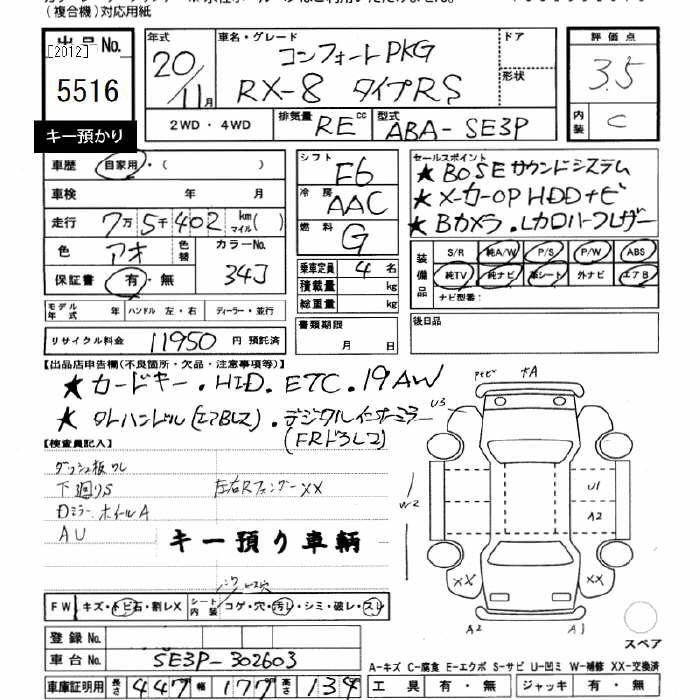 (複合機)対応用紙
出品No.
[2012]
5516
キー預かり
年式 20/11月
車名・グレード コンフォートPKG
RX-8 タイプRS
ドア
形状
評価点 3.5
内装 C
2WD・4WD
排気量 RE cc
型式 ABA-SE3P
車歴 自家用・( )
車検 年 月
走行 7万5千402 km マイル( )
色 アオ 色替 カラーNo. 34J
保証書 有・無
シフト F6
冷房 AAC
燃料 G
乗車定員 4名
積載量 kg
総重量 kg
セールスポイント
★BOSEサウンドシステム
★メーカーOP HDDナビ
★Bカメラ.Lカロハーフレザー
装備品 S/R 純A/W P/S P/W ABS
純TV 純ナビ 革シート 外ナビ エアB
ナビ型番:
モデル年式 年 ハンドル 左・右 ディーラー・並行
リサイクル料金 11950 円 預託済
書類期限
月 日
後日品
【出品店申告欄(不良箇所・欠品・注意事項等)】
★カードキー.HID.ETC.19AW
★タトハンドル(エアBレス).デジタルインナーミラー
(FRドラレコ)
【検査員記入】
ダッシュ板ワレ
下廻りS 左右Rフェンダーxx
Dミラー.ホイールA
AU
キー預り車輌
FW キズ・トビ石・割レX シート内装 コゲ・穴・汚レ・シミ・破レ・スレ
ビス穴
U3
A
W2
U1
A2
XX
XX
A2
A1
スペア
登録No.
車台No. SE3P-302603
A-キズ C-腐食 E-エクボ S-サビ U-凹ミ W-補修 XX-交換済
車庫証明用 長さ 447 幅 177 高さ 134
工具 有・無 ジャッキ 有・無